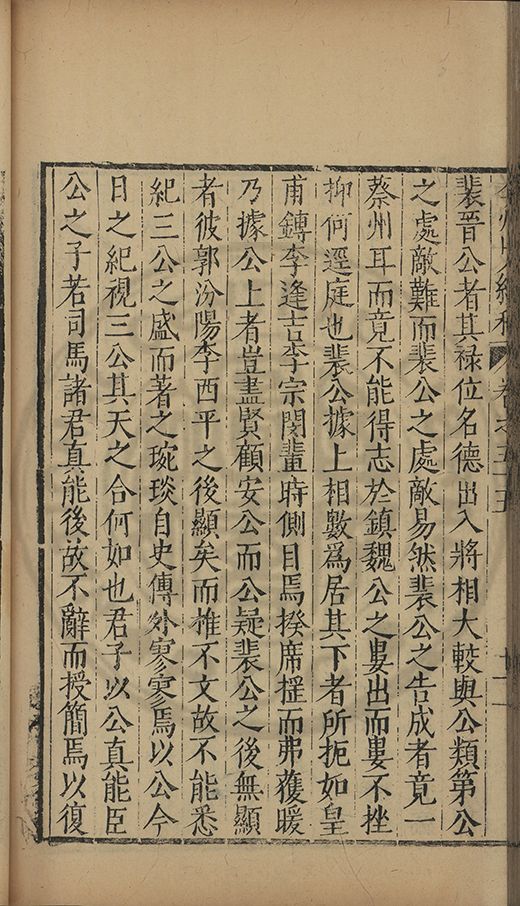 弇州山人續稿 卷之三十五
裴晉公者其祿位名德出入將相大較與公類第公
之處敵難而裴公之處敵易然裴公之告成者竟一
蔡州耳而竟不能得志於鎮魏公之婁出而婁不挫
抑何逕庭也裴公據上相數爲居其下者所扼如皇
甫鎛李逢吉李宗閔輩時側目焉揆席摇而弗獲暖
乃據公上者豈盡賢顧安公而公疑裴公之後無顯
者彼郭汾陽李西平之後顯矣而椎不文故不能悉
紀三公之盛而著之琬琰自史傳外寥寥焉以公今
日之紀視三公其天之合何如也君子以公真能臣
公之子若司馬諸君真能後故不辭而授簡焉以復